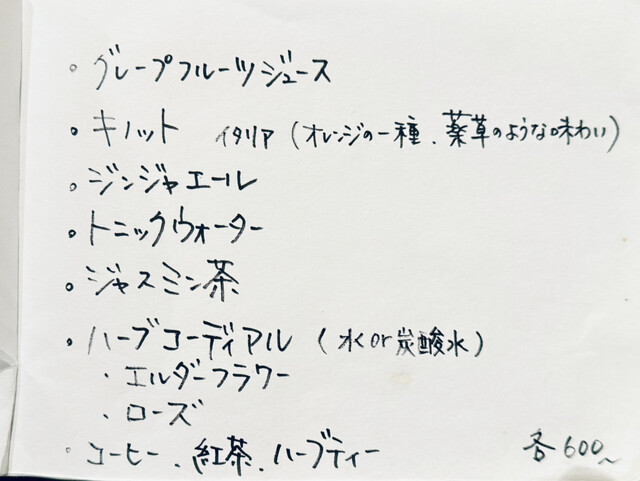 ・グレープフルーツジュース
・キノット イタリア (オレンジの一種、薬草のような味わい)
・ジンジャエール
・トニックウォーター
・ジャスミン茶
・ハーブコーディアル (水or炭酸水)
・エルダーフラワー
・ローズ
・コーヒー、紅茶、ハーブティー 各600~